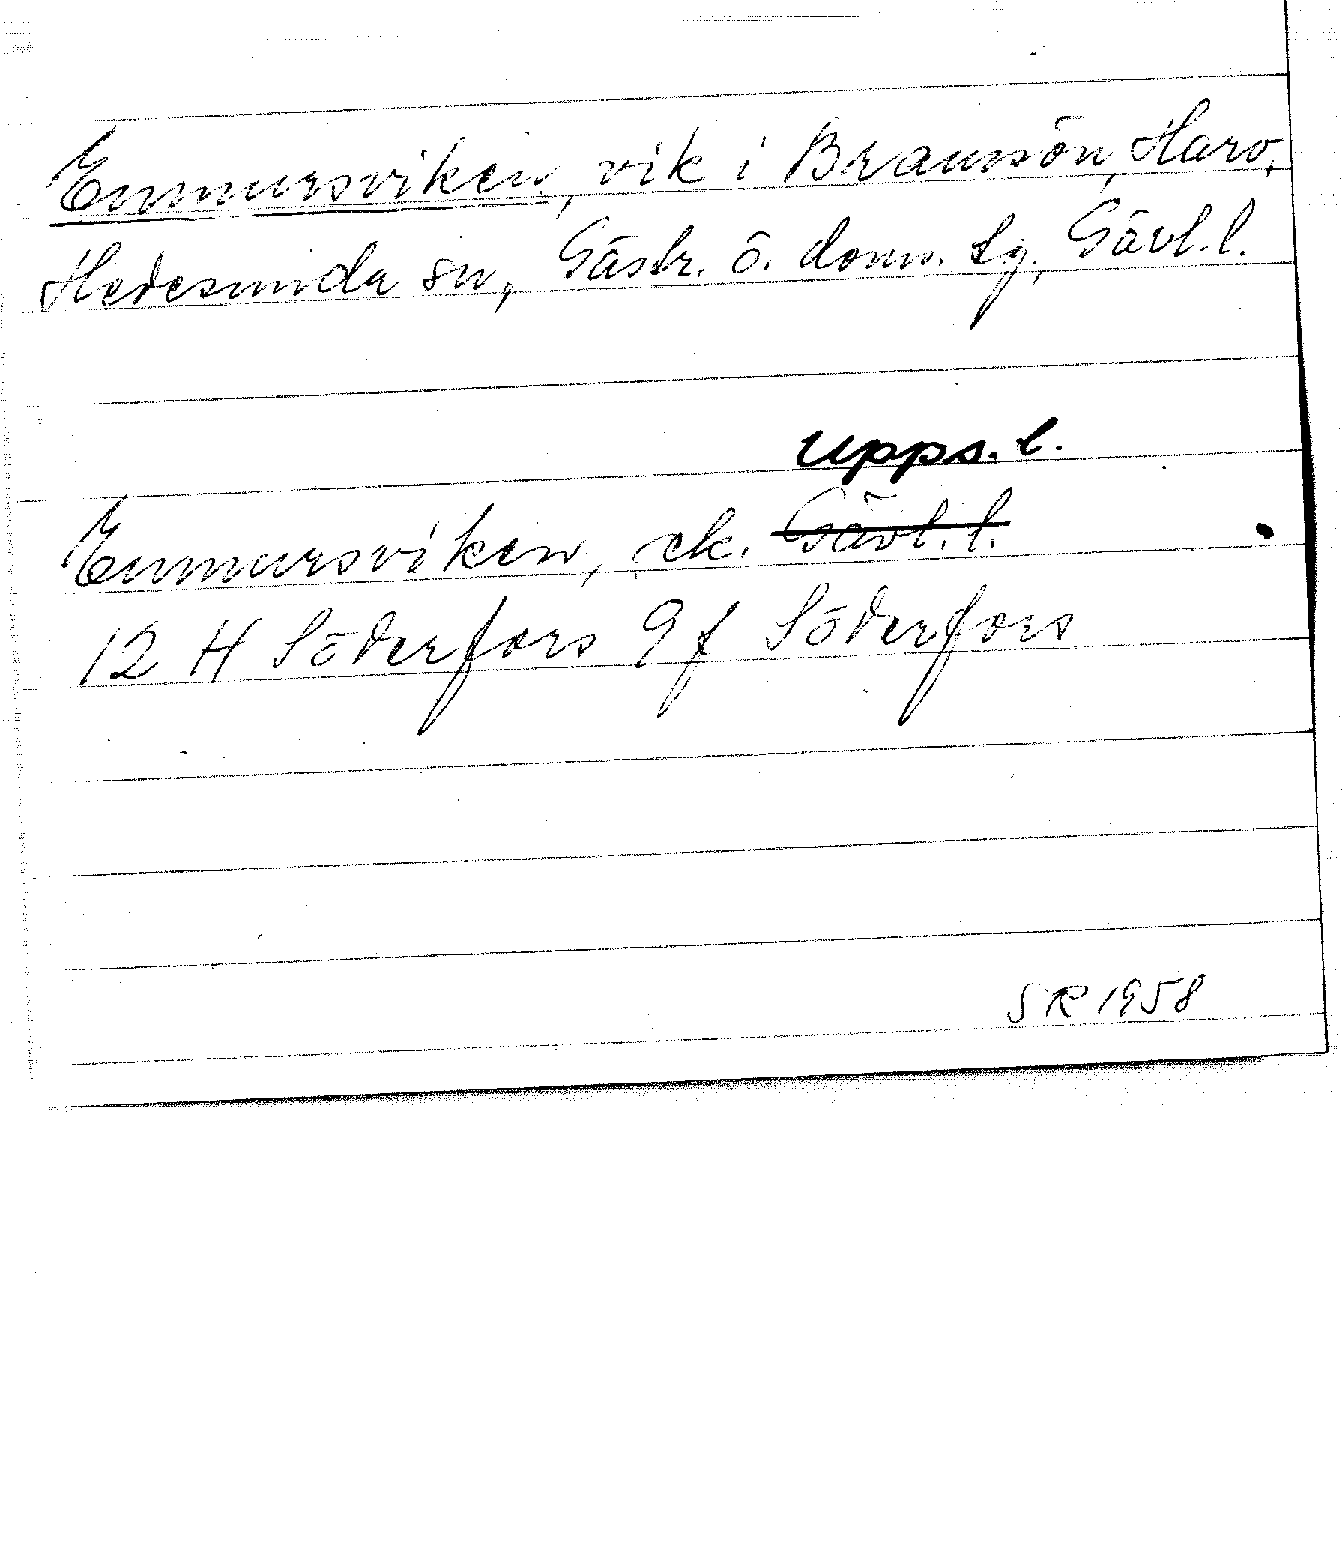 Enmursviken, vik i Bramsön, Harv,
Hedesunda sn, Gästr. ö. doms. tg, Gävl. l.
Upps. l.
Enmursviken, ek. Gävl. l.
12 H Söderfors 9 f Söderfors
SR 1958